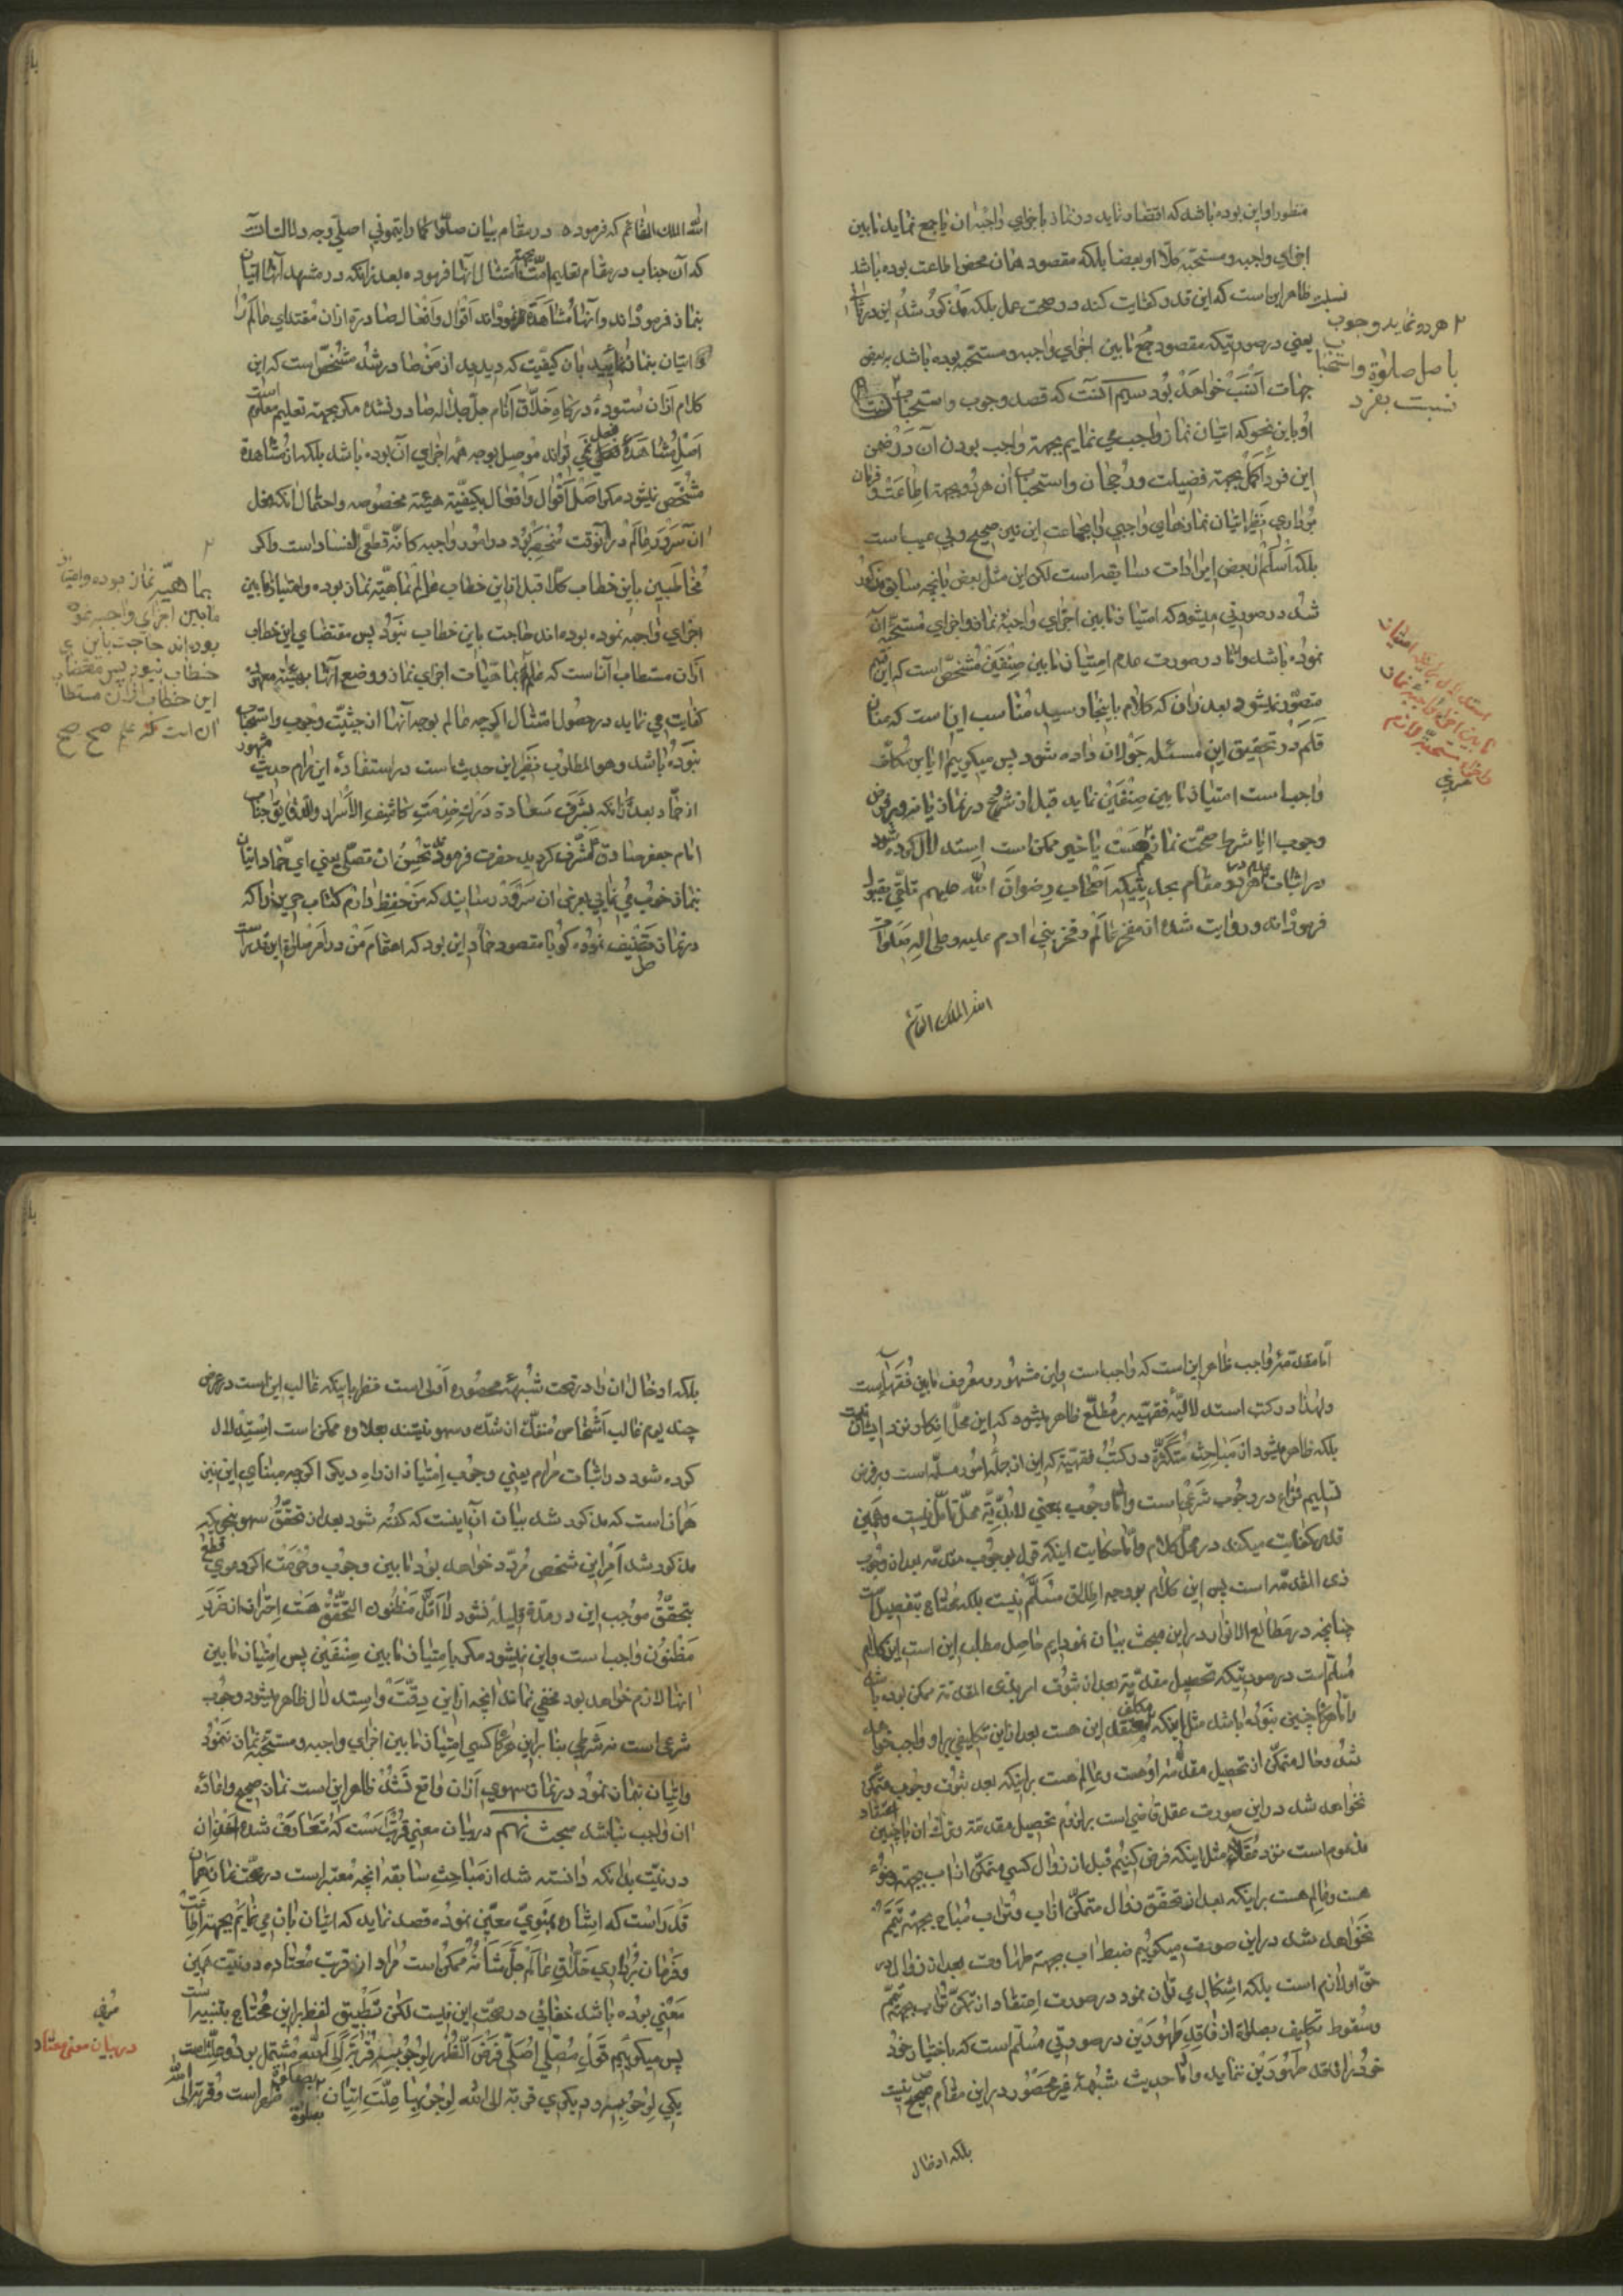 منظور او این بوده باشد که اقتصار نماید در نماز باجزای واجبه ان یا جمع نماید مابین
اجزای واجبه و مستحبه مثلا او بعضا بلکه مقصود همان محض اطاعت بوده باشد
ظاهر این است که این قدر کفایت کند در صحت عمل بلکه مذکور شد این در
یعنی در صورتیکه مقصود جمع مابین اجزای واجبه و مستحبه بوده باشد به بعض
جهات انسب خواهد بود سیم آنست که قصد وجوب و استحباب
او باین نحو که اتیان نماز واجب می نمایم بجهة واجب بودن آن در ضمن
این فرد اکمل بجهة فضیلت و رجحان و استحباب ان هر دو بجهة اطاعت و فرمان
برداری نظیر اتیان نمازهای واجبی با جماعت این نیز صحیح و بی عیب است
بلکه اسلم از بعض ایرادات سابقه است لکن این مثل بعض بآنچه سابق مذکور
شد در صورتی میشود که امتیاز مابین اجزای واجبهٔ نماز و اجزای مستحبه آن
نموده باشد و اما در صورت عدم امتیاز مابین صنفین مشخص است که این قسم
متصور نمیشود بعد از ان که کلام باینجا رسید مناسب ان است که عنان
قلم در تحقیق این مسئله جولان داده شود پس میگویم ایا بر مکلف
واجب است امتیاز مابین صنفین نماید قبل از شروع در نماز یا نه و بر فرض
وجوب ایا شرط صحت نماز هم هست یا خیر ممکن است استدلال کرده شود
در اثبات عدم هر دو مقام بحدیثیکه اصحاب رضوان الله علیهم تلقی بقبول
فرموده اند و روایت شده از مفخر عالم و فخر بنی ادم علیه و علی اله صلوات
الله الملک القائم
هر دو نماید وجوب
باصل صلوة و استحباب
نسبت بفرد
استدلال بر اینکه امتیاز
مابین اجزای واجبه نماز
و اجزای مستحبه لازم
الله الملک القائم که فرموده در مقام بیان صلوا کما رایتمونی اصلی وجه دلالت انست
که آن جناب در مقام تعلیم امت بجهة امتثال انها فرموده بعد از انکه در مشهد آنها اتیان
بنماز فرموده اند و آنها مشاهده نموده اند اقوال و افعال صادره از ان مقتدای عالم را
اتیان بنماز نمائید بان کیفیت که دیدید از من صادر شد مشخص است که این
کلام از ان ستودهٔ درگاه خلاق انام جل جلاله صادر نشده مگر بجهة تعلیم معلوم است
اصل مشاهدهٔ فعل نمی تواند موصل بوجه همه اجزای آن بوده باشد بلکه از مشاهده
مشخص نمیشود مگر اصل اقوال و افعال بکیفیة هیئة مخصوصه و احتمال انکه فعل
ان سرور عالم در آنوقت منحصر بود در امور واجبه کانه قطعی الفساد است و اگر
مخاطبین باین خطاب کلا قبل از این خطاب عالم بماهیة نماز بوده و امتیاز مابین
اجزای واجبه نموده بوده اند حاجت باین خطاب نبود پس مقتضای این خطاب
از ان مستطاب آن است که علم بماهیات اجزای نماز و وضع آنها بهیئة معهوده
کفایت می نماید در حصول امتثال اگرچه عالم بوجه آنها از حیثیت وجوب و استحباب
نبوده باشد و هو المطلوب نظیر این حدیث است در استفادهٔ این مرام حدیث مشهور
از حماد بعد از انکه بشرف سعادة درک خدمت کاشف الاسرار و الدقایق جناب
امام جعفر صادق مشرف گردید حضرت فرمود تحسن ان تصلی یعنی ای حماد ایا
نماز خوب می نمائی بعرض ان سرور رسانید که من حفظ دارم کتاب حریز را که
در نماز تصنیف نموده گویا مقصود حماد این بود که اهتمام من در امر صلوة این قدر است
بماهیة نماز بوده و امتیاز
مابین اجزای واجبه نموده
بوده اند حاجت باین
خطاب نبود پس مقتضای
این خطاب از ان مستطاب
ان است که علم صح صح
اما مقدمهٔ واجب ظاهر این است که واجب است و این مشهور و معروف مابین فقها است
و لهذا در کتب استدلالیهٔ فقهیه بر مطلع ظاهر میشود که این محل انکار نزد ایشان نیست
بلکه ظاهر میشود از مباحث متکثره در کتب فقهیة که این از جمله امور مسلمه است و بر فرض
تسلیم نزاع در وجوب شرعی است و اما وجوب بمعنی لابدیة محل تامل نیست و همین
قدر کفایت میکند در محل کلام و اما حکایت اینکه قول بوجوب مقدمه بعد از وجوب
ذی المقدمه است پس این کلام بوجه اطلاق مسلم نیست بلکه محتاج بتفصیل است
چنانچه در مطالع الانوار در این مبحث بیان نموده ایم حاصل مطلب این است این کلام
مسلم است در صورتیکه تحصیل مقدمه بعد از ثبوت امر بذی المقدمه ممکن بوده باشد
و اما هرگاه چنین نبوده باشد مثل اینکه مکلف معتقد این هست بعد از این تکلیفی بر او واجب خواهد
شد و حال متمکن از تحصیل مقدمه او هست و عالم هست بر اینکه بعد ثبوت وجوب متمکن
نخواهد شد در این صورت عقل قاضی است بر لزوم تحصیل مقدمة و ترک ان با چنین اعتقاد
مذموم است نزد عقلا مثل اینکه فرض کنیم قبل از زوال کسی متمکن از اب بجهة وضوء
هست و عالم هست بر اینکه بعد از تحقق زوال متمکن از اب و تراب مباح بجهة تیمم
نخواهد شد در این صورت میگوییم ضبط اب بجهة طهارت بعد از زوال در
حق او لازم است بلکه اشکال می توان نمود در صورت اعتقاد از تمکن تراب بجهة تیمم
و سقوط تکلیف بصلوة از فاقد طهورین در صورتی مسلم است که باختیار خود
خود را فاقد طهورین ننماید و اما حدیث شبهه غیر محصور در این مقام صحیح نیست
بلکه ادخال
بلکه ادخال ان را در تحت شبههٔ محصوره اولی است نظر باینکه غالب این است در عرض
چند یوم غالب اشخاص منفک از شک و سهو نیستند بعلاوه ممکن است استدلال
کرده شود در اثبات مرام یعنی وجوب امتیاز از راه دیگر اگرچه مبنای این نیز
همان است که مذکور شد بیان آن اینست که گفته شود بعد از تحقق سهو بنحویکه
مذکور شد امر این شخص مردد خواهد بود مابین وجوب و حرمت اگر دعوی قطع
بتحقق موجب این در مدة قلیله نشود لااقل مظنون التحقق هست احتراز از ضرر
مظنون واجب است و این نمیشود مگر بامتیاز مابین صنفین پس امتیاز مابین
انها لازم خواهد بود مخفی نماند انچه از این دقت و استدلال ظاهر میشود وجوب
شرعی است نه شرطی بنابراین هرگاه کسی امتیاز مابین اجزای واجبه و مستحبه نماز ننمود
و اتیان بنماز نمود در نماز سهوی از ان واقع نشد ظاهر این است نماز صحیح و اعادهٔ
ان واجب نباشد مبحث نهم در بیان معنی قربت است که متعارف شده اخذ ان
در نیت بدانکه دانسته شد از مباحث سابقه انچه معتبر است در صحت نماز همان
قدر است که اشاره بمنوی معین نموده قصد نماید که اتیان بان می نمایم بجهة اطاعت
و فرمان برداری خلاق عالم جل شانه ممکن است مراد از قربت معتاده در نیت همین
معنی بوده باشد خفائی در صحت این نیست لکن تطبیق لفظ بر این محتاج بتنبیه است
پس میگوییم قول مصلی اصلی فرض الظهر لوجوبه قربة الی الله مشتمل بر دو علت است
یکی لوجوبه و دیگری قربة الی الله لوجوبها علت اتیان بصلوة ظهر است و قربة الی الله
در بیان معنی معتاد